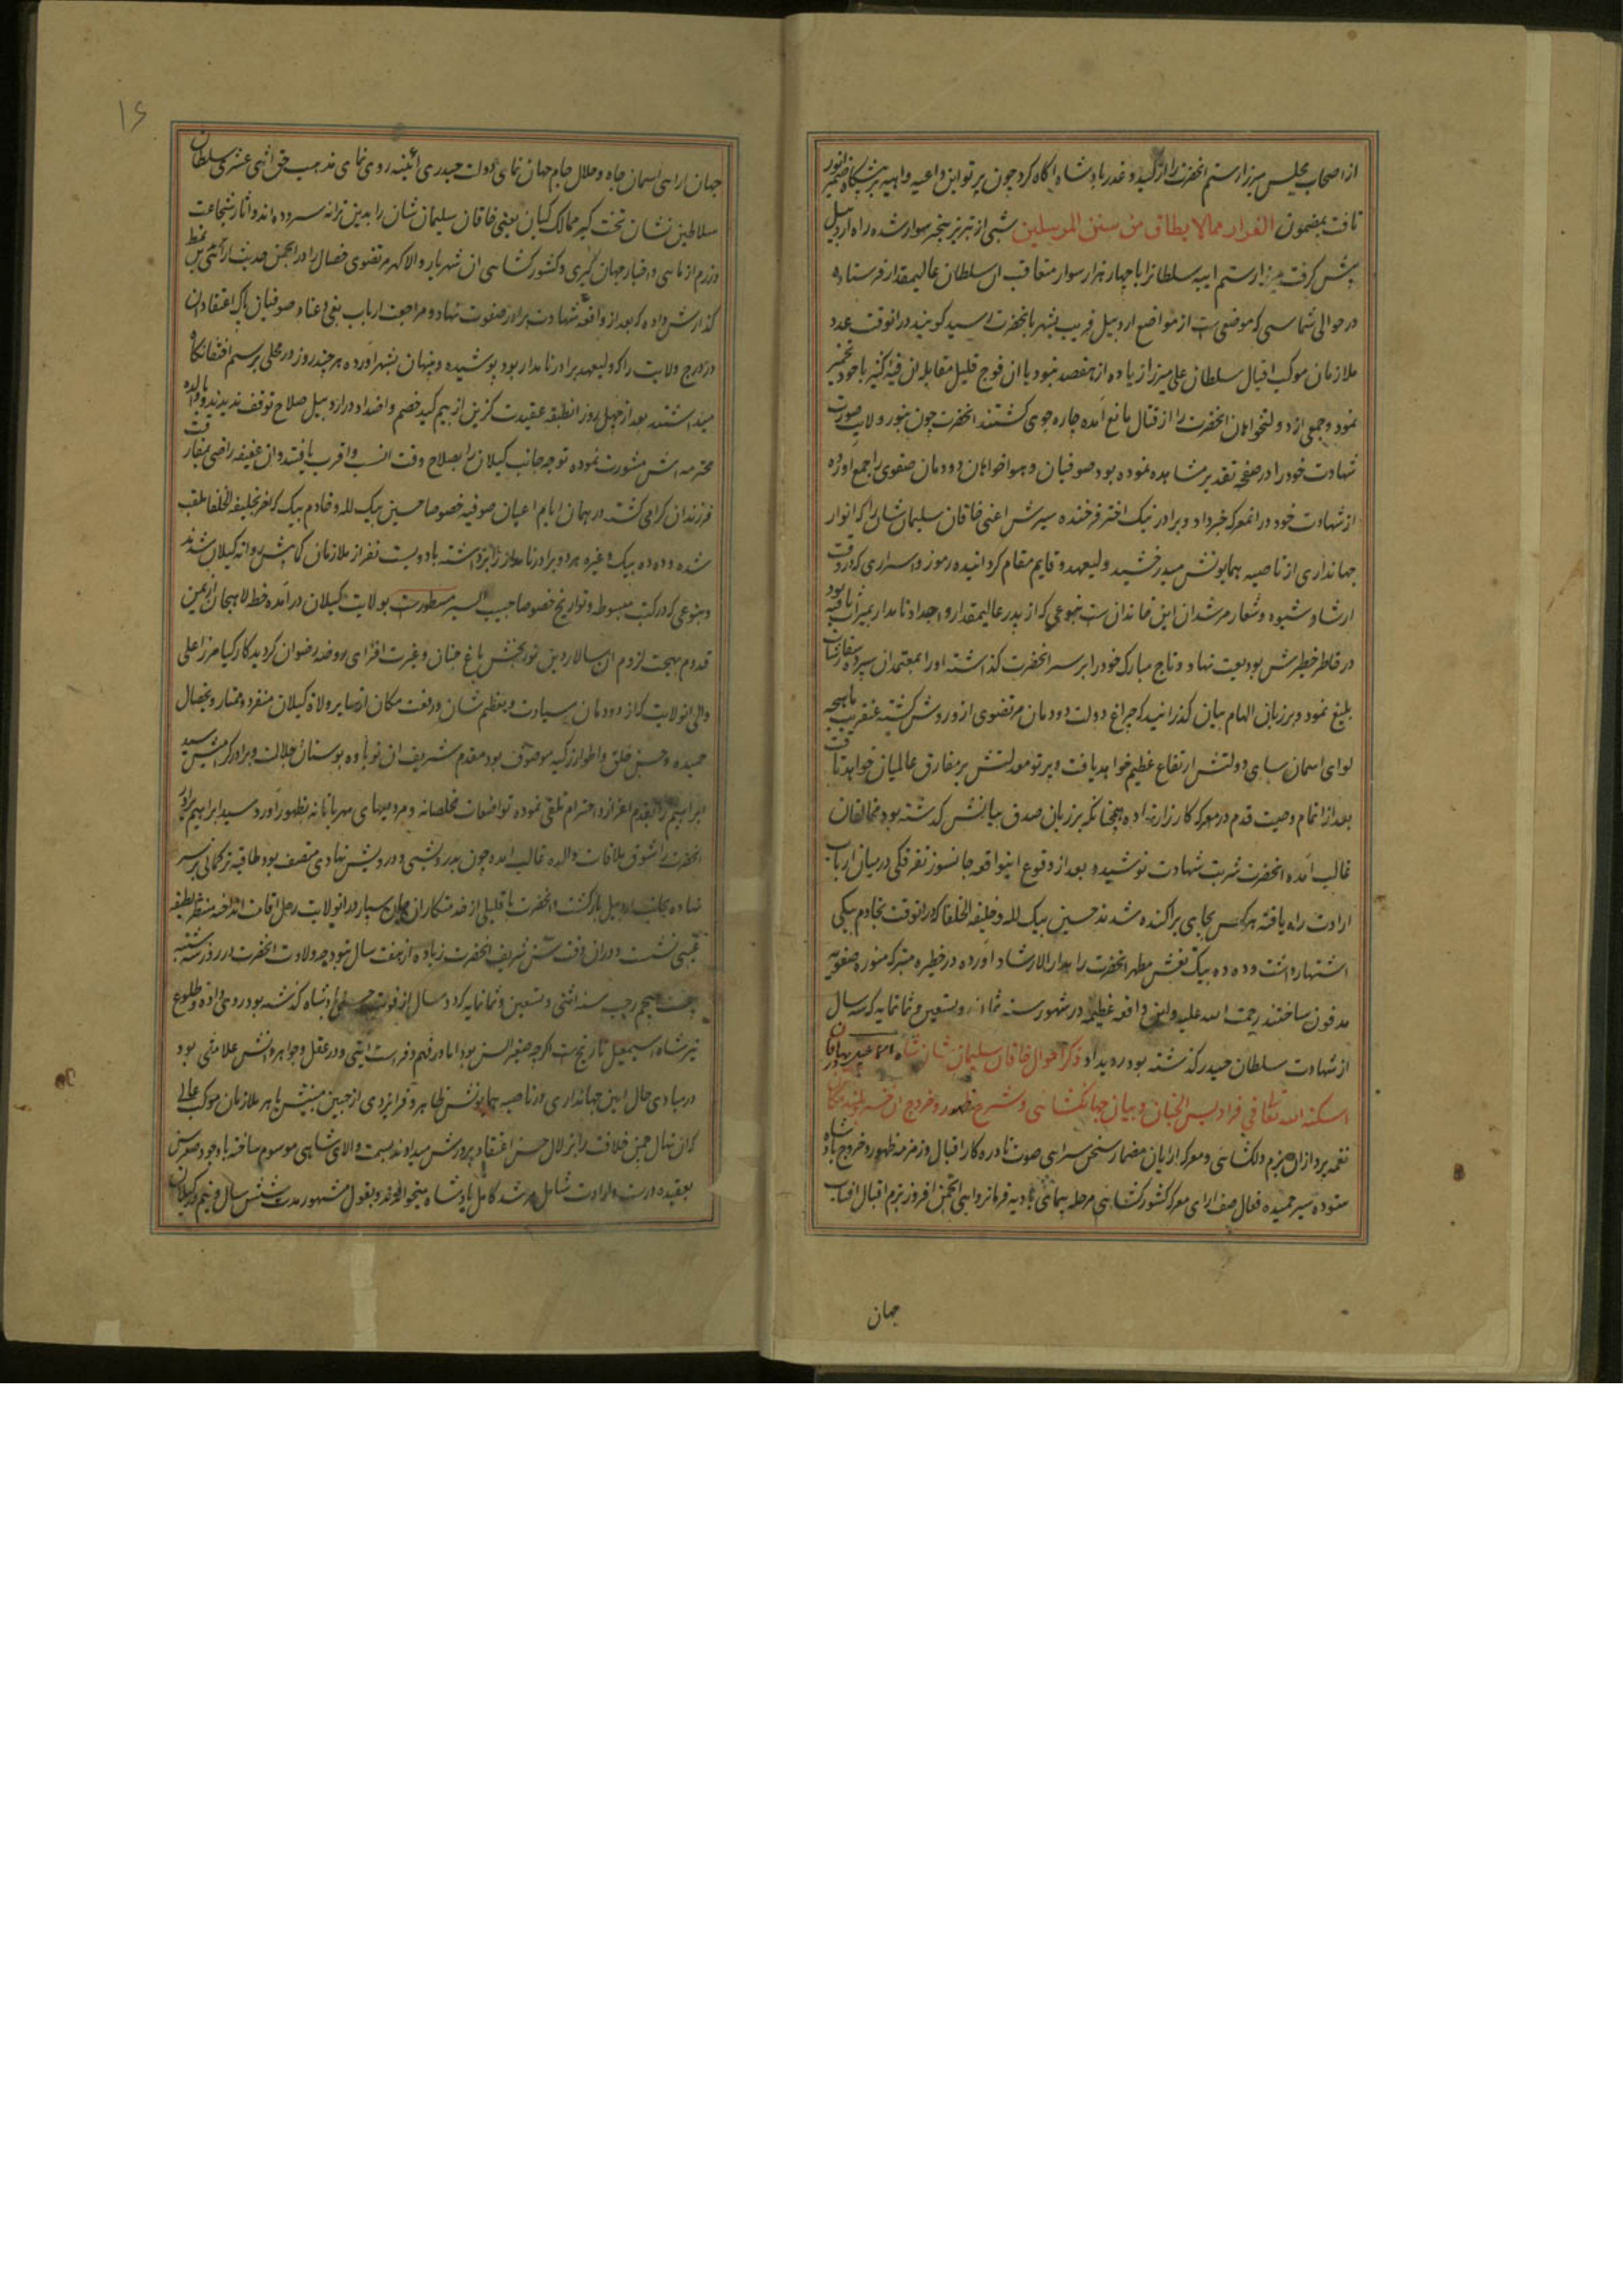 از اصحاب مجلس میرزا رستم انحضرت را از کید و غدر پادشاه اکاه کرد چون پرتو این داعیه واهیه بر پیشکاه ضمیر انور
تافت بمضمون الفرار مما لا یطاق من سنن المرسلین شبی از تبریز سوار شده راه اردبیل
پیش کرفت میرزا رستم ایبه سلطانرا با چهار هزار سوار متعاقب ان سلطان عالیمقدار فرستاده
در حوالی شماسی که موضعی است از مواضع اردبیل قریب بشهر بانحضرت رسید کویند در انوقت عدد
ملازمان موکب اقبال سلطان علی میرزا زیاده از هفتصد نبود با ان فوج قلیل مقابله ان فئه کثیر با خود تخمیر
نمود و جمعی از دولتخواهان انحضرت را از قتال مانع آمده چاره جوی کشتند انحضرت چون بنور ولایت صورت
شهادت خود را در صفحه تقدیر مشاهده نموده بود صوفیان و هواخواهان دودمان صفوی را جمع اورده
از شهادت خود در انمعرکه خبر داد و برادر نیک اختر فرخنده سیرش اعنی خاقان سلیمان شان را که انوار
جهانداری از ناصیه همایونش میدرخشید ولیعهد و قایم مقام کردانیده رموز و اسراری که در وقت
ارشاد شیوه و شعار مرشدان این خاندان است بنوعی که از پدر عالیمقدار و اجداد نامدار بمیراث یافته بود
در خاطر خطیرش بودیعت نهاد و تاج مبارک خود را بر سر انحضرت کذاشته او را بمعتمدان سپرده سفارشات
بلیغ نمود و بر زبان الهام بیان کذرانید که چراغ دولت دودمان مرتضوی از و روشن کشته عنقریب ماهچه
لوای اسمان سای دولتش ارتفاع عظیم خواهد یافت و پرتو معدلتش بر مفارق عالمیان خواهد تافت
بعد از اتمام وصیت قدم در معرکه کارزار نهاده همچنانکه بر زبان صدق بیانش کذشته بود مخالفان
غالب آمده انحضرت شربت شهادت نوشید و بعد از وقوع اینواقعه جانسوز تفرقکی در میان ارباب
ارادت راه یافته هر کس بجایی پراکنده شدند حسین بیک لله و خلیفه الخلفا که در انوقت بخادم بیکی
اشتهار داشت و ده ده بیک نعش مطهر انحضرت را بدار الارشاد آورده در حظیره متبرکه منوره صفویه
مدفون ساختند رحمت الله علیه و این واقعه عظیمه در شهور سنه ثمان و تسعین و ثمانمایه که سال
از شهادت سلطان حیدر کذشته بود رویداد ذکر احوال خاقان سلیمان شان شاه اسمعیل بهادر خان
اسکنه الله تعالی فی فرادیس الجنان و بیان جهانکشایی و شرح ظهور و خروج ان خسرو
نغمه پردازان بزم دلکشایی و معرکه ارایان مضمار سخن سرایی صوت نادره کار اقبال و زمزمه ظهور و خروج پادشاه
ستوده سیر حمیده فعال صف ارای معرکه کشورکشایی مرحله پیمای بادیه فرمانروایی انجمن افروز بزم اقبال افتاب
جهان
۱۶
جهان رای اسمان جاه و جلال جام جهان نمای دولت حیدری ائینه روی نمای مذهب حق اثنی عشری سلطان
سلاطین نشان تخت کیر ممالک کیان یعنی خاقان سلیمان شان را بدین ترانه سروده اند و اثار شجاعت
و رزم ازمایی و اخبار جهان کیری و کشورکشایی ان شهریار والا کهر مرتضوی خصال را در انجمن حدیث ارایی بدین نمط
کذارش داده که بعد از واقعه شهادت برادر صفوت نهاد و مراجعت ارباب بغی و عناد صوفیان پاک اعتقاد ان
در درج ولایت را که ولیعهد برادر نامدار بود پوشیده و پنهان بشهر آورده هر چند روز در محلی برسم اختفا نکاه
میداشتند بعد از چهل روز انطبقه عقیدت کزین از بیم کید خصم و اضداد در اردبیل صلاح توقف ندیدند و والده
محترمه اش مشورت نموده توجه جانب کیلان را بصلاح وقت انسب و اقرب یافتند و ان عفیفه راضی بمفارقت
فرزندان کرامی کشته در همان ایام اعیان صوفیه خصوصا حسین بیک لله و خادم بیک که اخر بخلیفه الخلفا ملقب
شده و ده ده بیک و غیره هر دو برادر نامدار را برداشته با دویست نفر از ملازمان کامش روانه کیلان شدند
و بنوعی که در کتب مبسوطه و تواریخ خصوصا حبیب السیر مسطور است بولایت کیلان درآمده خطه لاهیجان از یمن
قدوم بهجت لزوم ان سالار دین نور بخش باغ جنان و غیرت افزای روضه رضوان کردید کارکیا میرزا علی
والی انولایت که از دودمان سیادت و بعظم شان و رفعت مکان از سایر ولاة کیلان منفرد و ممتاز و بخصال
حمیده و حسن خلق و اطوار زکیه موصوف بود مقدم شریف ان نوباوه بوستان جلالت و برادر کرامیش سید
ابراهیم را بقدم اعزاز و احترام تلقی نموده تواضعات مخلصانه و مردمیهای مهربانانه بظهور آورد و سید ابراهیم برادر
انحضرت را شوق ملاقات والده غالب امده چون بدرویشی و درویش نهادی متصف بود طاقیه ترکمانی بر سر
نهاده بجانب اردبیل بازکشت و انحضرت با قلیلی از خدمتکاران جان سپار در انولایت رحل اقامت انداخته منتظر لطیفه
غیبی نشست و در ان وقت سن شریف انحضرت زیاده از هفت سال نبود چه ولادت انحضرت در روز سه شنبه
بیست پنجم رجب سنه اثنی و تسعین و ثمانمایه که دو سال از فوت حسن پادشاه کذشته بود روی داده و طلوع
نیر شاه اسمعیل تاریخ است اکرچه صغیر السن بود اما در فهم و فراست ایتی و در عقل و جواهر دانش علامتی بود
در مبادی حال ایین جهانداری در ناصیه همایونش ظاهر و فر ایزدی از جبین مبینش باهر ملازمان موکب عالی
که ان نهال چمن خلافت را بزلال حسن اعتقاد پرورش میدادند بسمت والای شاهی موسوم ساخته با وجود صغر سن
بعقیده درست و ارادت شامل مرشد کامل پادشاه میخواندند و بقول مشهور مدت شش سال و نیم در کیلان